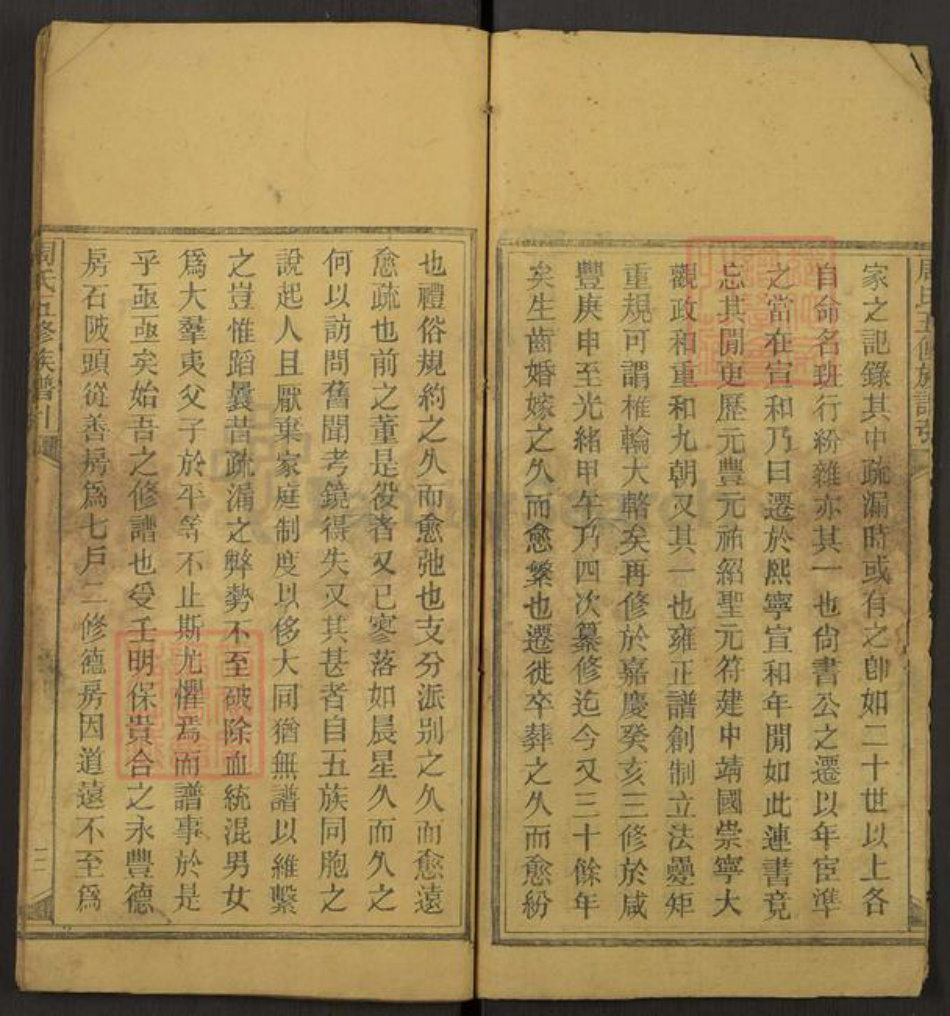 家之記錄其中疏漏時或有之卽如二十世以上各
自命名班行紛雜亦其一也尙書公之遷以年宦準
之當在宣和乃曰遷於熙寧宣和年閒如此連書竟
忘其閒更歷元豐元祐紹聖元符建中靖國崇寧大
觀政和重和九朝又其一也雍正譜創制立法疊矩
重規可謂椎輪大輅矣再修於嘉慶癸亥三修於咸
豐庚申至光緒甲午乃四次纂修迄今又三十餘年
矣生齒婚嫁之久而愈繁也遷徙卒葬之久而愈紛
也禮俗規約之久而愈弛也支分派別之久而愈遠
愈疏也前之董是役者又已寥落如晨星久而久之
何以訪問舊聞考鏡得失又其甚者自五族同胞之
說起人且厭棄家庭制度以侈大同猶無譜以維繫
之豈惟蹈曩昔疏漏之弊勢不至破除血統混男女
爲大羣夷父子於平等不止斯尤懼焉而譜事於是
乎亟亟矣始吾之修譜也受壬明保貴合之永豐德
房石陂頭從善房爲七戶二修德房因道遠不至爲
周氏五修族譜引
二